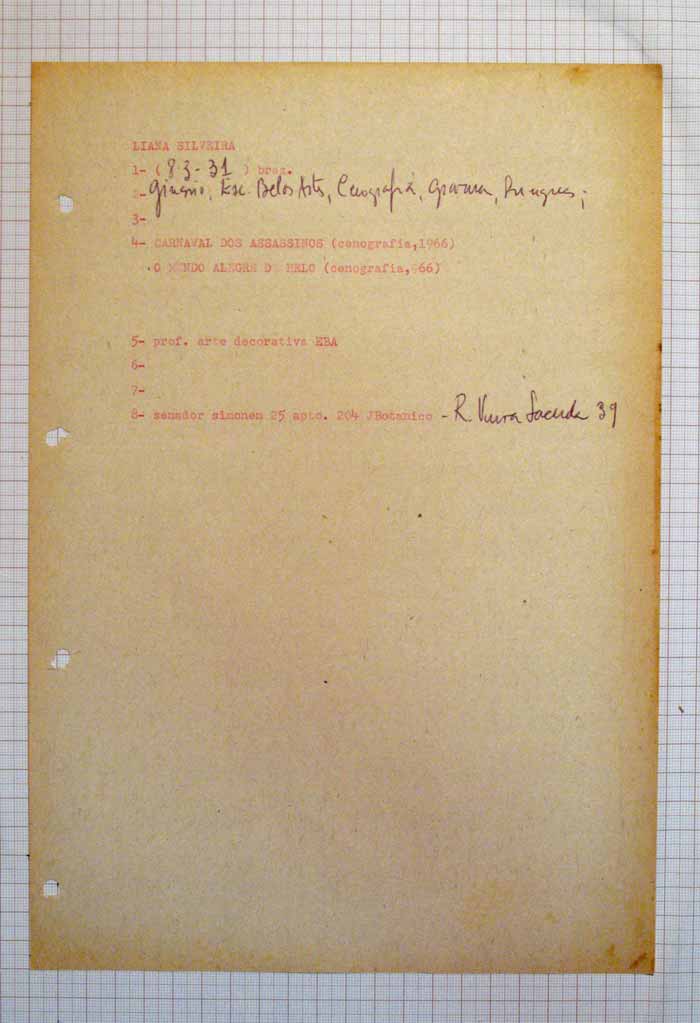 LIANA SILVEIRA
1- ( 83-31 ) bras.
2- Esc. Belas Artes, Cenografia, Gravura,
3-
4- CARNAVAL DOS ASSASSINOS (cenografia,1966)
O MUNDO ALEGRE DE HELO (cenografia,966)
5- prof. arte decorativa EBA
6-
7-
8- senador simonen 25 apto. 204 JBotanico - R. 39